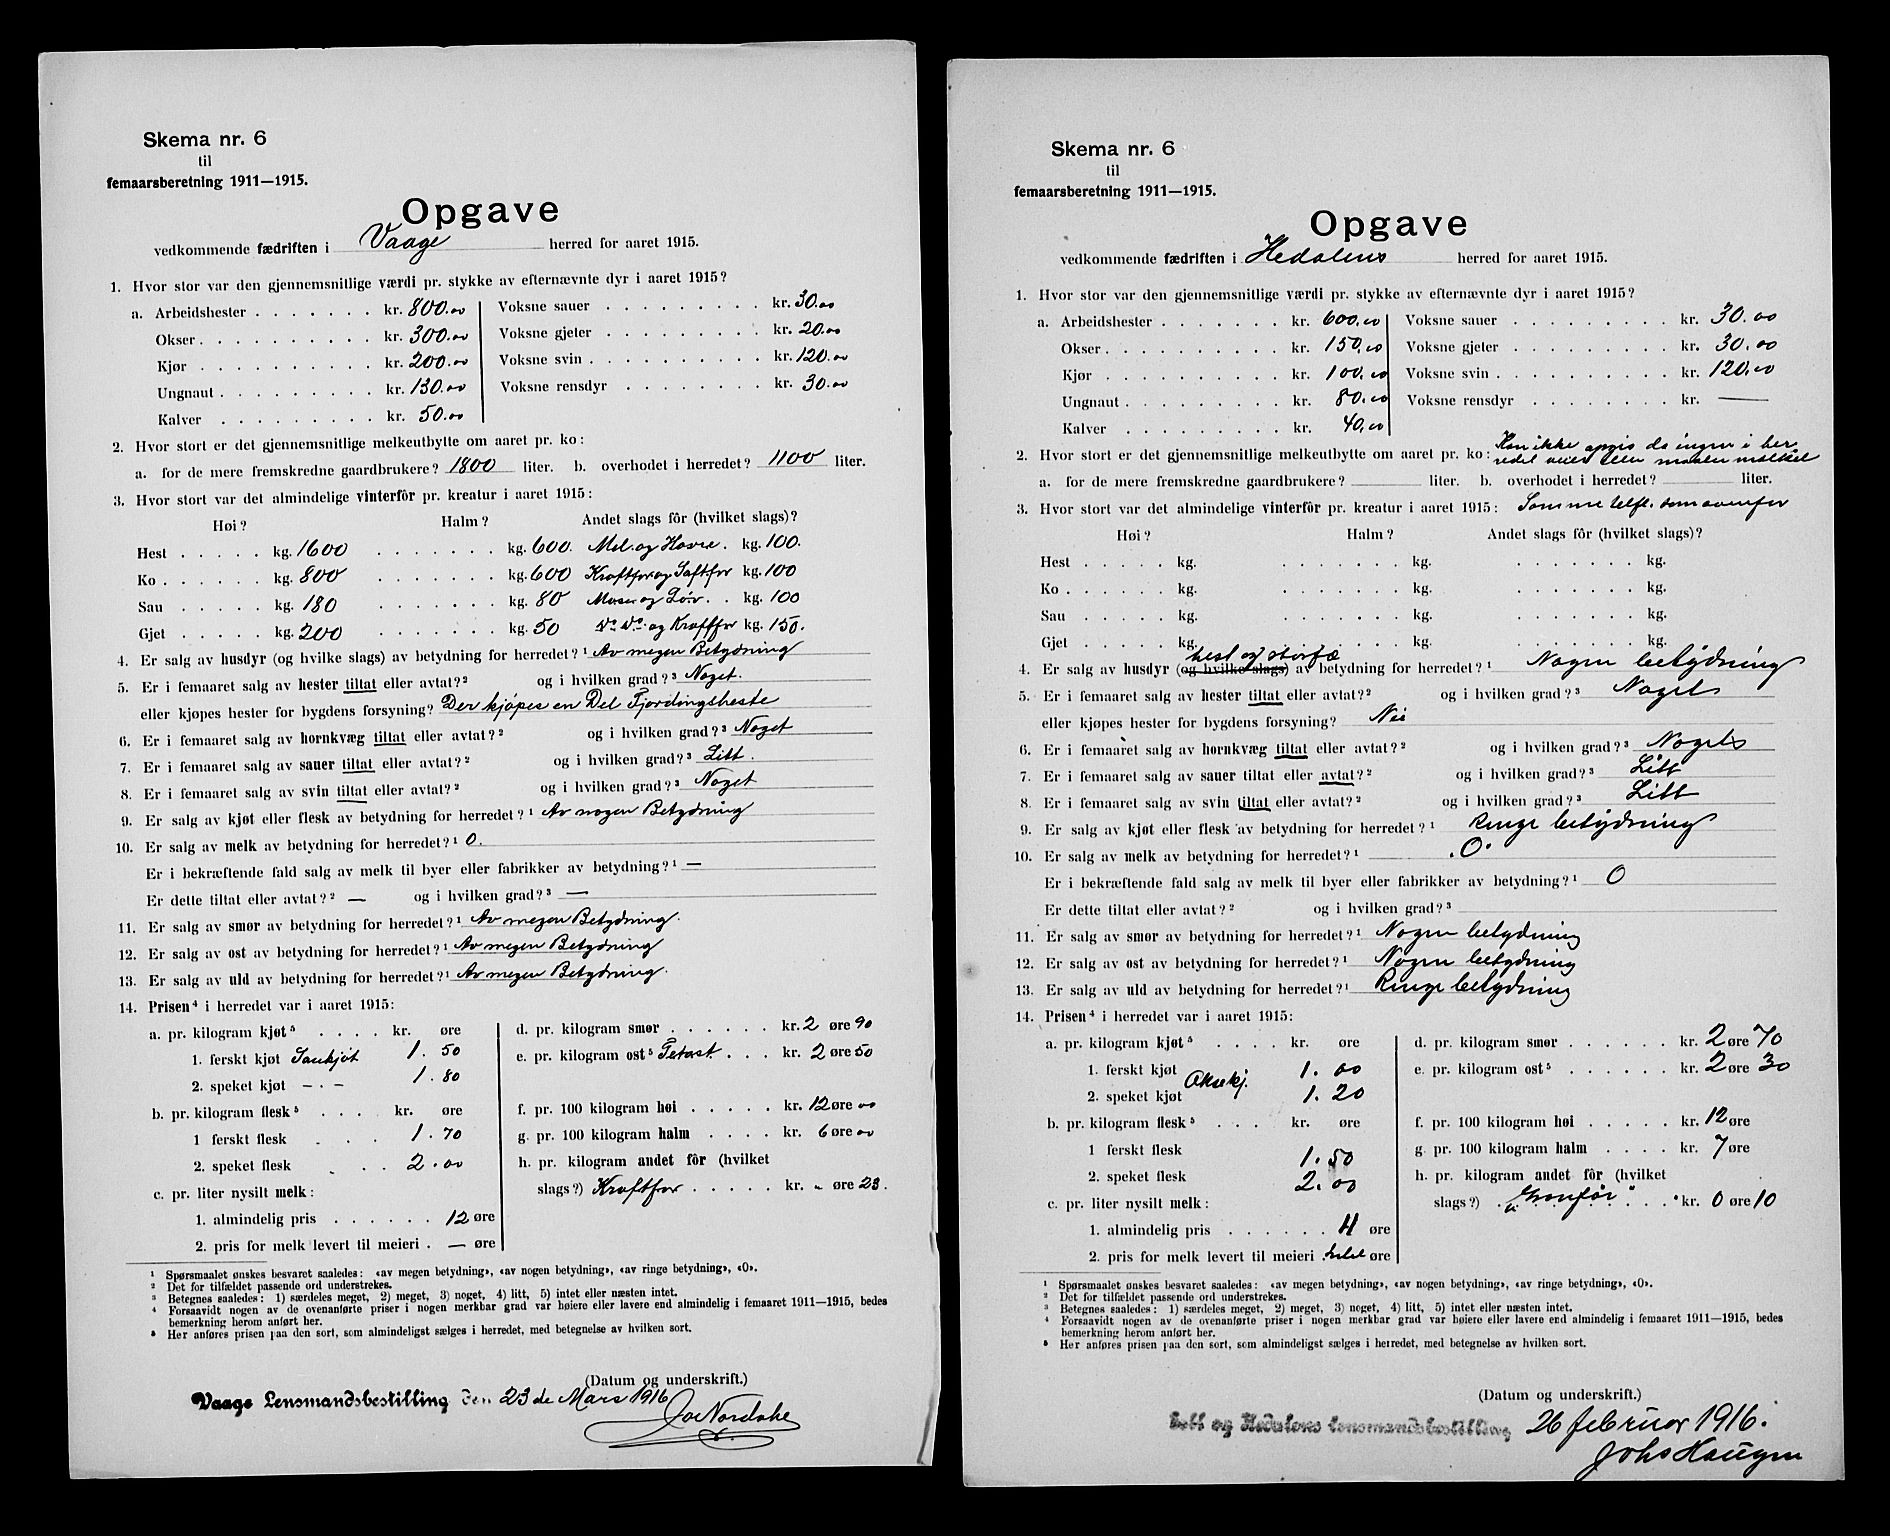 Skema nr. 6
til
femaarsberetning 1911—1915.
Opgave
vedkommende fædriften i Vaage herred for aaret 1915.
1. Hvor stor var den gjennemsnitlige værdi pr. stykke av efternævnte dyr i aaret 1915?
a. Arbeidshester . . . . . . . kr. 800.00 Voksne sauer . . . . . . . . kr. 30.00
Okser . . . . . . . . . . kr. 300.00 Voksne gjeter . . . . . . . . kr. 20.00
Kjør . . . . . . . . . . kr. 200.00 Voksne svin . . . . . . . . . kr. 120.00
Ungnaut . . . . . . . . . kr. 130.00 Voksne rensdyr . . . . . . . kr. 30.00
Kalver . . . . . . . . . kr. 50.00
2. Hvor stort er det gjennemsnitlige melkeutbytte om aaret pr. ko:
a. for de mere fremskredne gaardbrukere? 1800 liter. b. overhodet i herredet? 1100 liter.
3. Hvor stort var det almindelige vinterfôr pr. kreatur i aaret 1915:
Høi? Halm? Andet slags fôr (hvilket slags)?
Hest . . . . . kg. 1600 . . . . . . . kg. 600. Mel. og Havre. kg. 100.
Ko . . . . . . kg. 800 . . . . . . . kg. 600 Kraftfor og Saftfor kg. 100
Sau . . . . . kg. 180 . . . . . . . kg. 80 Mose og Löv . . kg. 100
Gjet . . . . . kg. 200 . . . . . . . kg. 50 Do. Do. og Kraftfor kg. 150.
4. Er salg av husdyr (og hvilke slags) av betydning for herredet?¹ Av megen Betydning
5. Er i femaaret salg av hester tiltat eller avtat?² og i hvilken grad?³ Noget.
eller kjøpes hester for bygdens forsyning? Der kjöpes en Del Fjordingsheste
6. Er i femaaret salg av hornkvæg tiltat eller avtat?² og i hvilken grad?³ Noget
7. Er i femaaret salg av sauer tiltat eller avtat?² og i hvilken grad?³ Litt.
8. Er i femaaret salg av svin tiltat eller avtat?² og i hvilken grad?³ Noget
9. Er salg av kjøt eller flesk av betydning for herredet?¹ Av nogen Betydning
10. Er salg av melk av betydning for herredet?¹ 0.
Er i bekræftende fald salg av melk til byer eller fabrikker av betydning?¹ —
Er dette tiltat eller avtat?² — og i hvilken grad?³ —
11. Er salg av smør av betydning for herredet?¹ Av megen Betydning.
12. Er salg av ost av betydning for herredet?¹ Av megen Betydning
13. Er salg av uld av betydning for herredet?¹ Av megen Betydning.
14. Prisen⁴ i herredet var i aaret 1915:
a. pr. kilogram kjøt⁵ . . . . kr. øre d. pr. kilogram smør . . . . . . kr. 2 øre 90
1. ferskt kjøt Saukjöt 1.50 e. pr. kilogram ost⁵ Fetost . . . kr. 2 øre 50
2. speket kjøt — - — 1.80
b. pr. kilogram flesk⁵ . . . . kr. øre f. pr. 100 kilogram høi . . . . . kr. 12 øre 00
1 ferskt flesk . . . 1.70 g. pr. 100 kilogram halm . . . . kr. 6 øre 00
2. speket flesk . . . 2.00 h. pr. kilogram andet fôr (hvilket
c. pr. liter nysilt melk: slags?) Kraftfor . . . . . kr. „ øre 23.
1. almindelig pris . . . . . . 12 øre
2. pris for melk levert til meieri . — øre
¹ Spørsmaalet ønskes besvaret saaledes: «av megen betydning», «av nogen betydning», «av ringe betydning», «0».
² Det for tilfældet passende ord understrekes.
³ Betegnes saaledes: 1) særdeles meget, 2) meget, 3) noget, 4) litt, 5) intet eller næsten intet.
⁴ Forsaavidt nogen av de ovenanførte priser i nogen merkbar grad var høiere eller lavere end almindelig i femaaret 1911—1915, bedes
bemerkning herom anført her.
⁵ Her anføres prisen paa den sort, som almindeligst sælges i herredet, med betegnelse av hvilken sort.
(Datum og underskrift.)
Vaage Lensmandsbestilling den 23de Mars 1916
Skema nr. 6
til
femaarsberetning 1911—1915.
Opgave
vedkommende fædriften i Hedalens herred for aaret 1915.
1. Hvor stor var den gjennemsnitlige værdi pr. stykke av efternævnte dyr i aaret 1915?
a. Arbeidshester . . . . . . . kr. 600,00 Voksne sauer . . . . . . . . kr. 30.00
Okser . . . . . . . . . . kr. 150,00 Voksne gjeter . . . . . . . . kr. 30.00
Kjør . . . . . . . . . . kr. 100,00 Voksne svin . . . . . . . . . kr. 120,00
Ungnaut . . . . . . . . . kr. 80,00 Voksne rensdyr . . . . . . . kr. —
Kalver . . . . . . . . . kr. 40,00
Kan ikke opgis da ingen i her
2. Hvor stort er det gjennemsnitlige melkeutbytte om aaret pr. ko: redet veier eller maaler melken
a. for de mere fremskredne gaardbrukere? liter. b. overhodet i herredet? liter.
3. Hvor stort var det almindelige vinterfôr pr. kreatur i aaret 1915: Samme tilfe. som ovenfor
Høi? Halm? Andet slags fôr (hvilket slags)?
Hest . . . . . kg. . . . . . . . kg. . . . . . . . kg.
Ko . . . . . . kg. . . . . . . . kg. . . . . . . . kg.
Sau . . . . . kg. . . . . . . . kg. . . . . . . . kg.
Gjet . . . . . kg. . . . . . . . kg. . . . . . . . kg.
hest og storfæ
4. Er salg av husdyr (og hvilke slags) av betydning for herredet?¹ Nogen betydning
5. Er i femaaret salg av hester tiltat eller avtat?² og i hvilken grad?³ Noget
eller kjøpes hester for bygdens forsyning? Nei
6. Er i femaaret salg av hornkvæg tiltat eller avtat?² og i hvilken grad?³ Noget
7. Er i femaaret salg av sauer tiltat eller avtat?² og i hvilken grad?³ Litt
8. Er i femaaret salg av svin tiltat eller avtat?² og i hvilken grad?³ Litt
9. Er salg av kjøt eller flesk av betydning for herredet?¹ Ringe betydning
10. Er salg av melk av betydning for herredet?¹ .0.
Er i bekræftende fald salg av melk til byer eller fabrikker av betydning?¹ 0
Er dette tiltat eller avtat?² og i hvilken grad?³
11. Er salg av smør av betydning for herredet?¹ Nogen betydning
12. Er salg av ost av betydning for herredet?¹ Nogen betydning
13. Er salg av uld av betydning for herredet?¹ Ringe betydning
14. Prisen⁴ i herredet var i aaret 1915:
a. pr. kilogram kjøt⁵ . . . . kr. øre d. pr. kilogram smør . . . . . . kr. 2 øre 70
1. ferskt kjøt Oksekj. 1.00 e. pr. kilogram ost⁵ . . . . . . kr. 2 øre 30
2. speket kjøt 1.20
b. pr. kilogram flesk⁵ . . . kr. øre f. pr. 100 kilogram høi . . . . . kr. 12 øre
1 ferskt flesk 1.50 g. pr. 100 kilogram halm . . . . kr. 7 øre
2. speket flesk 2.00 h. pr. kilogram andet fôr (hvilket
c. pr. liter nysilt melk: slags?) . . . . . kr. 0 øre 10
1. almindelig pris . . . . . . øre
2. pris for melk levert til meieri øre
¹ Spørsmaalet ønskes besvaret saaledes: «av megen betydning», «av nogen betydning», «av ringe betydning», «0».
² Det for tilfældet passende ord understrekes.
³ Betegnes saaledes: 1) særdeles meget, 2) meget, 3) noget, 4) litt, 5) intet eller næsten intet.
⁴ Forsaavidt nogen av de ovenanførte priser i nogen merkbar grad var høiere eller lavere end almindelig i femaaret 1911—1915, bedes
bemerkning herom anført her.
⁵ Her anføres prisen paa den sort, som almindeligst sælges i herredet, med betegnelse av hvilken sort.
(Datum og underskrift.)
og Hedalens lensmandsbestilling 26 februar 1916.
Johs Haugen